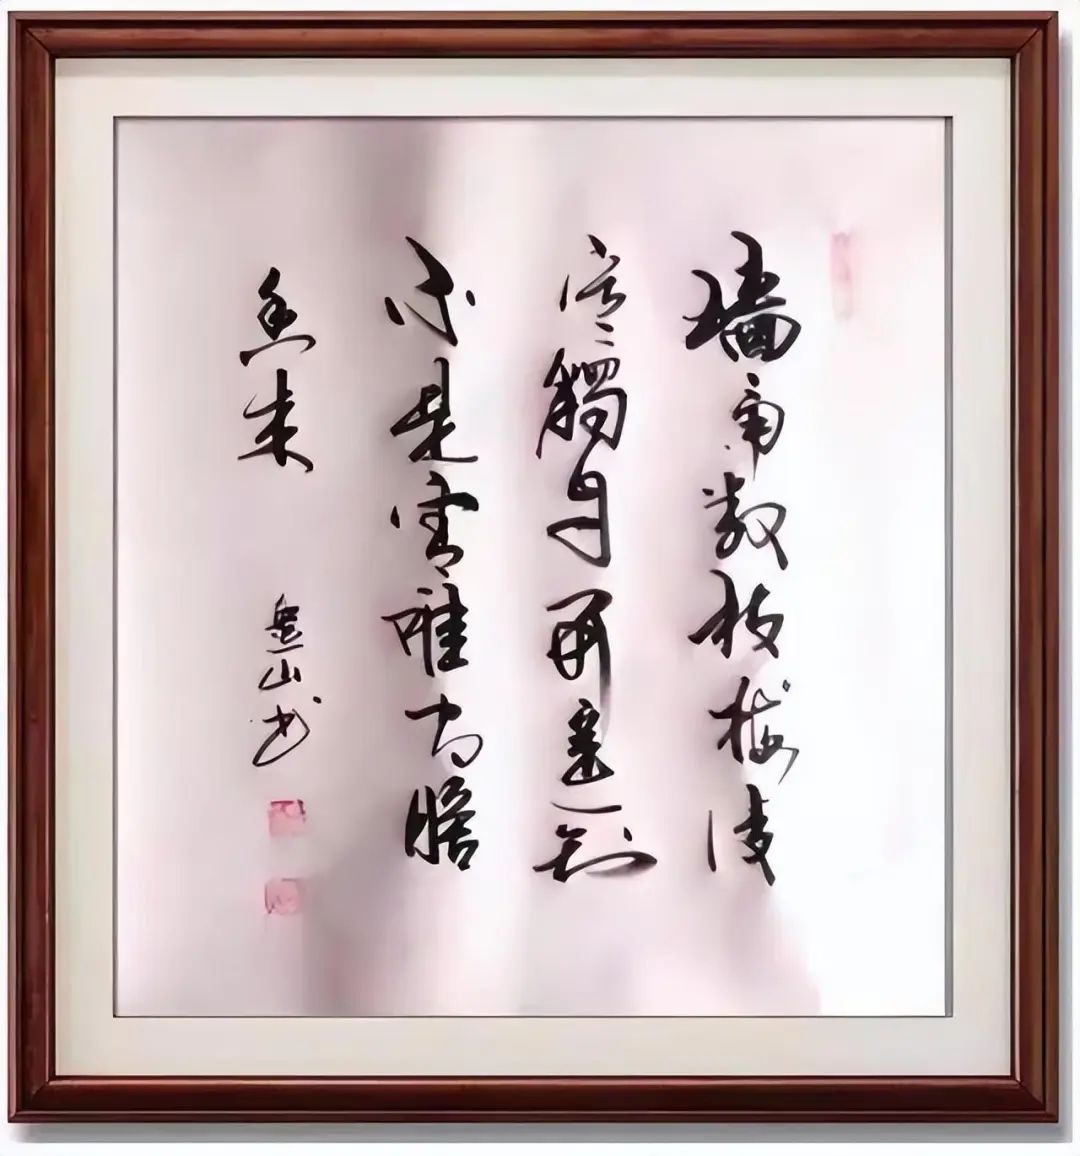 墙角数枝梅凌
寒獨自开遥知
不是雪唯有暗
香来
盘山书